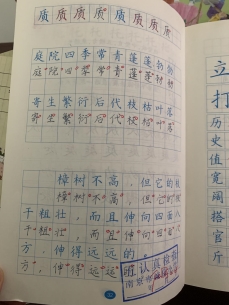 质 质 质 质 质 质 质
庭 院 四 季 常 青 蓬 蓬 勃 勃
庭 院 四 季 常 青 蓬 蓬 勃 勃
寄 生 繁 衍 后 代 枝 枯 叶 落
寄 生 繁 衍 后 代 枝 枯 叶 落
樟 树 不 高 ， 但 它 的 枝
樟 树 不 高 ， 但 它 的 枝
干 粗 壮 ， 而 且 伸 向 四 面 八
干 粗 壮 ， 而 且 伸 向 四 面 八
方 ， 伸 得 远 远 的
方 ， 伸 得 远 远
认真
立
打
历史
值
宽
阔
搭
官
斤